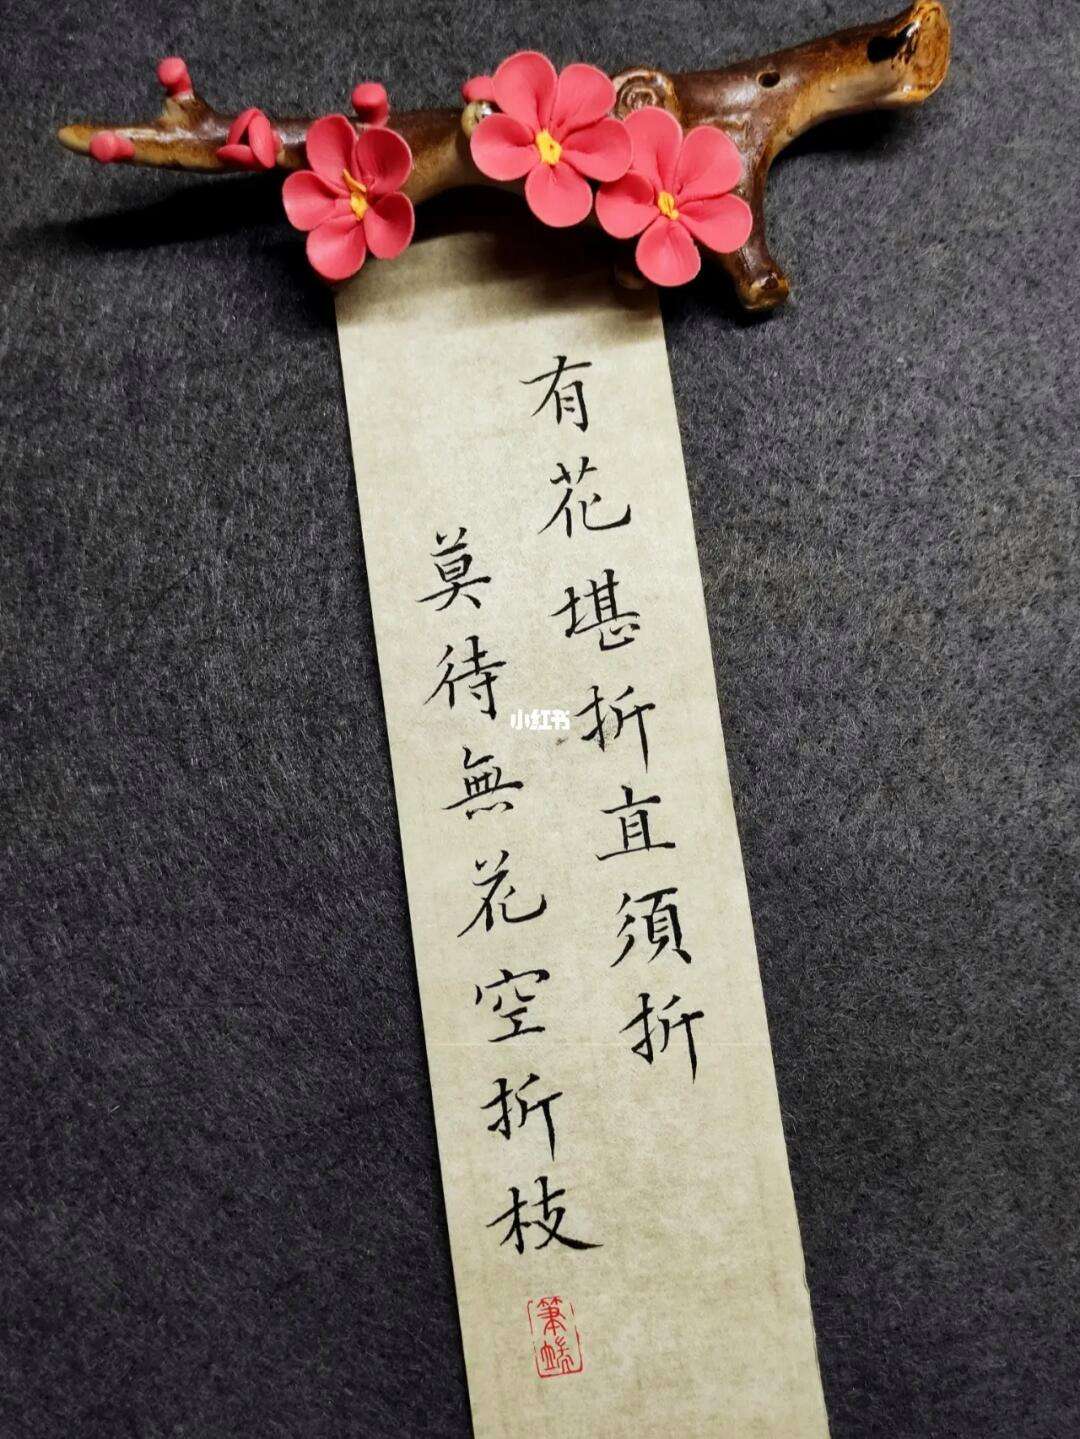 有花堪折直須折
莫待無花空折枝
小红书